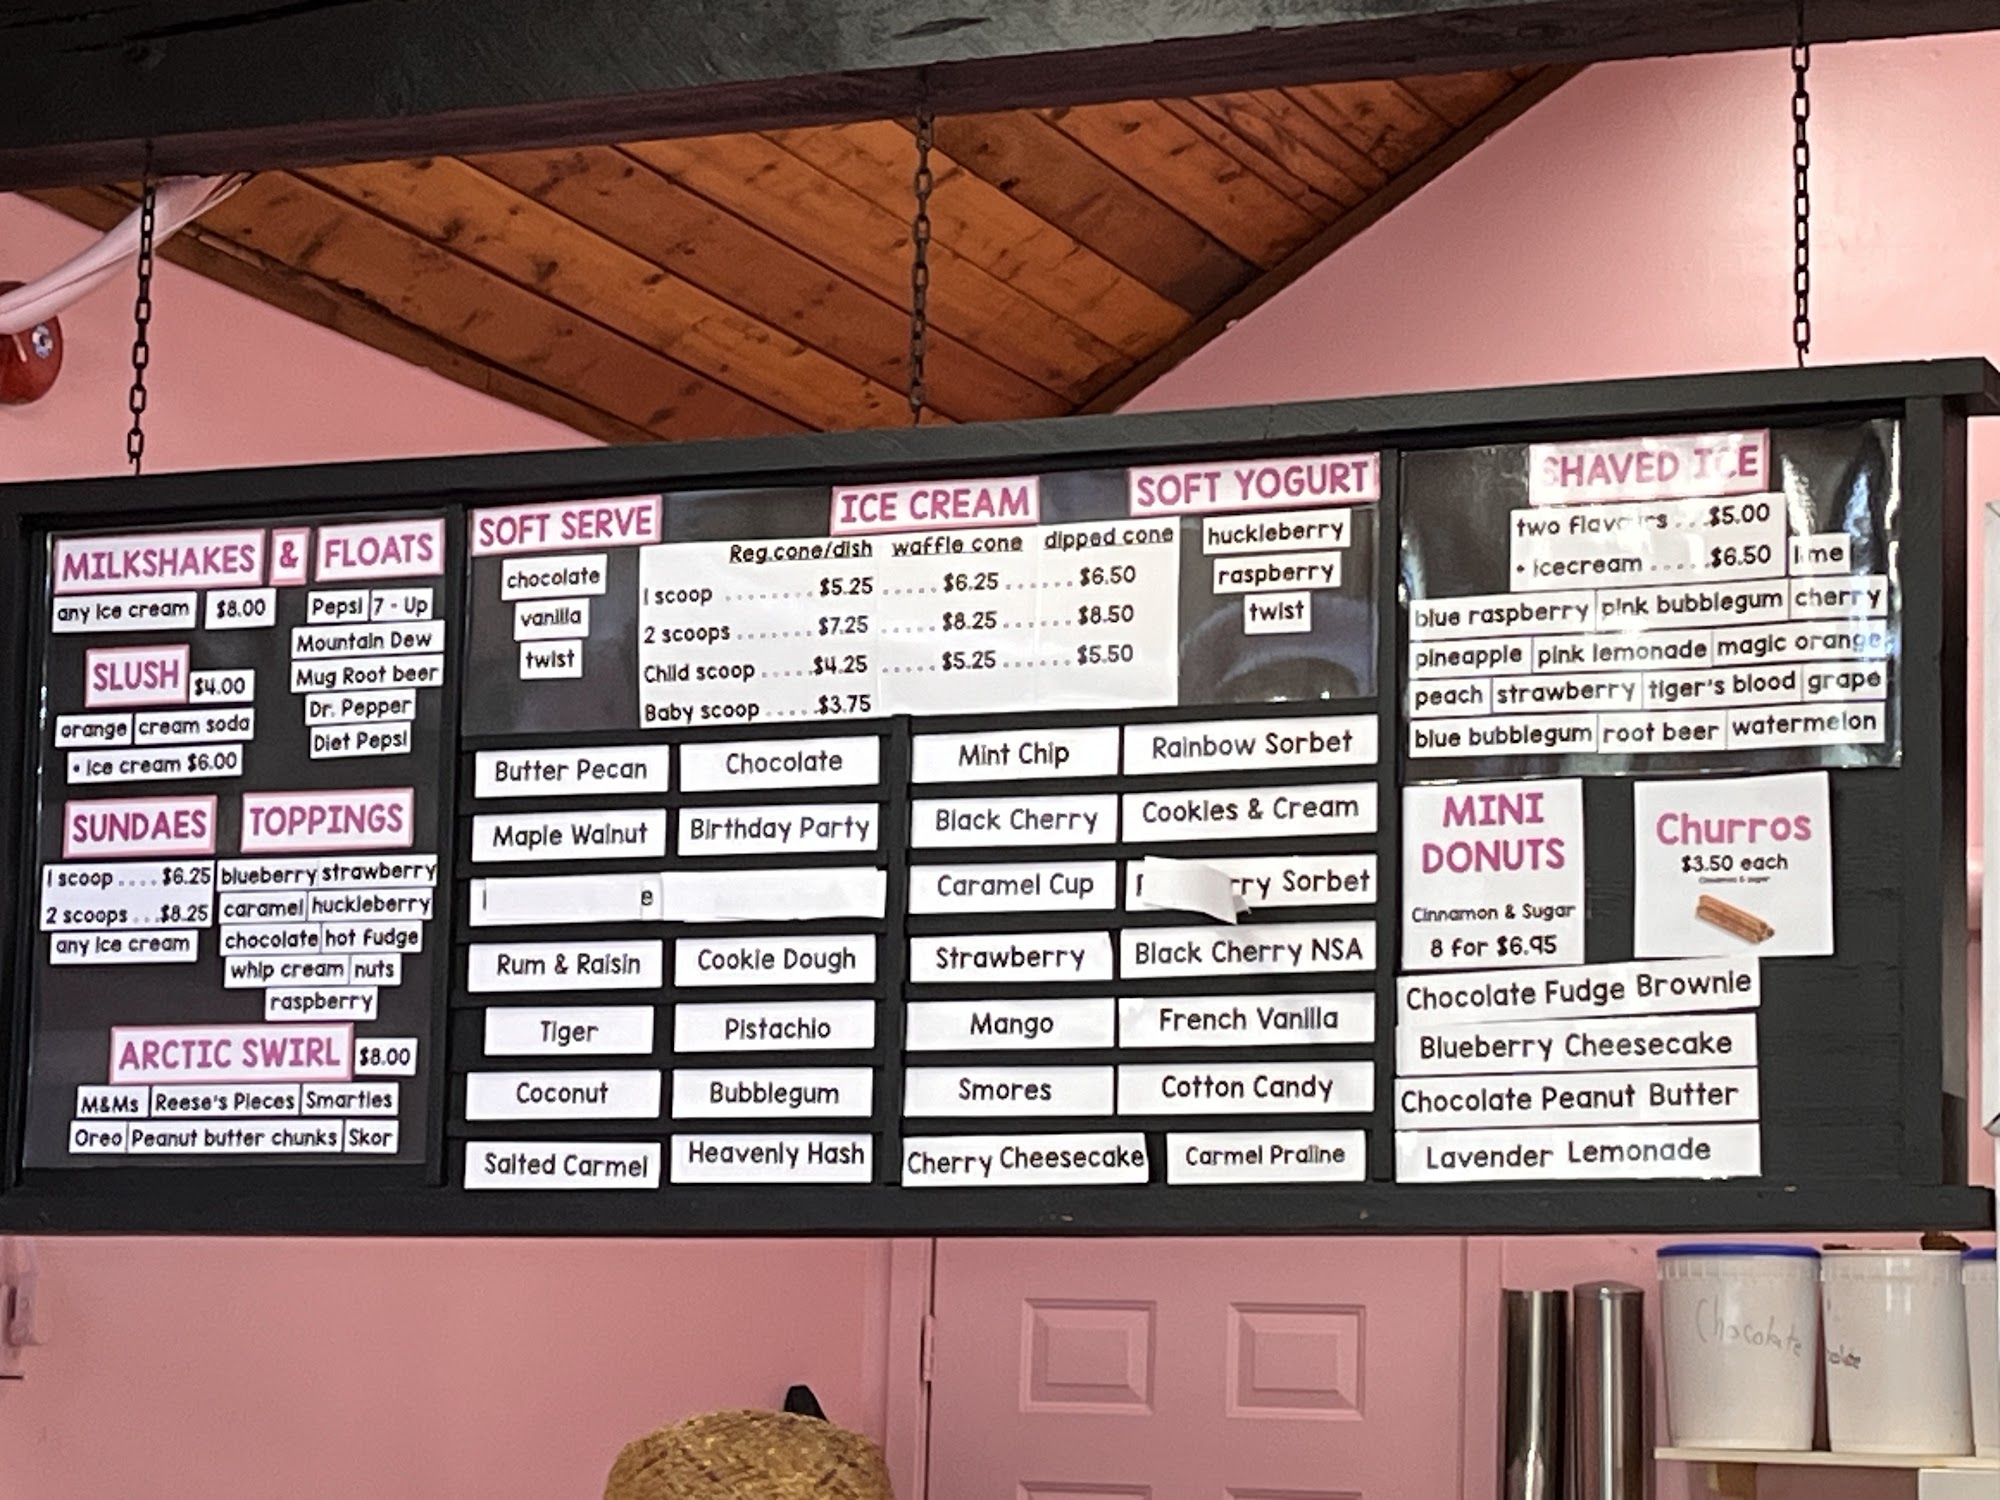 MILKSHAKES & FLOATS
any ice cream $8.00
Pepsi 7 - Up
Mountain Dew
Mug Root beer
Dr. Pepper
Diet Pepsi
SLUSH $4.00
orange cream soda
• ice cream $6.00
SUNDAES
1 scoop .... $6.25
2 scoops ... $8.25
any ice cream
TOPPINGS
blueberry strawberry
caramel huckleberry
chocolate hot fudge
whip cream nuts
raspberry
ARCTIC SWIRL $8.00
M&Ms Reese's Pieces Smarties
Oreo Peanut butter chunks Skor
SOFT SERVE
chocolate
vanilla
twist
ICE CREAM
Reg.cone/dish waffle cone dipped cone
1 scoop ........ $5.25 ..... $6.25 ...... $6.50
2 scoops ....... $7.25 ..... $8.25 ...... $8.50
Child scoop ..... $4.25 ..... $5.25 ...... $5.50
Baby scoop ..... $3.75
SOFT YOGURT
huckleberry
raspberry
twist
Butter Pecan Chocolate
Maple Walnut Birthday Party
Rum & Raisin Cookie Dough
Tiger Pistachio
Coconut Bubblegum
Salted Carmel Heavenly Hash
Mint Chip Rainbow Sorbet
Black Cherry Cookies & Cream
Caramel Cup Sorbet
Strawberry Black Cherry NSA
Mango French Vanilla
Smores Cotton Candy
Cherry Cheesecake Carmel Praline
SHAVED ICE
two flavours ... $5.00
• icecream ..... $6.50 lime
blue raspberry pink bubblegum cherry
pineapple pink lemonade magic orange
peach strawberry tiger's blood grape
blue bubblegum root beer watermelon
MINI
DONUTS
Cinnamon & Sugar
8 for $6.95
Churros
$3.50 each
Cinnamon & sugar
Chocolate Fudge Brownie
Blueberry Cheesecake
Chocolate Peanut Butter
Lavender Lemonade
Chocolate